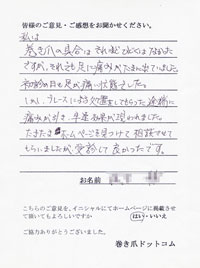 皆様のご意見・ご感想をお聞かせください。
私は
巻き爪の具合はそれほどひどくはなかった
ですが、それでも足に痛みがたまに出ていました。
初診の日も足が痛い状態でした。
しかし、ブレースによる処置をしてもらった途端に
痛みが引き、早速効果が現われました。
たまたまホームページを見つけて相談させて
もらいましたが受診して良かったです。
お名前
こちらのご意見を、イニシャルにてホームページに掲載させ
て頂いてもよろしいですか はい・いいえ
ご協力ありがとうございました。
巻き爪ドットコム